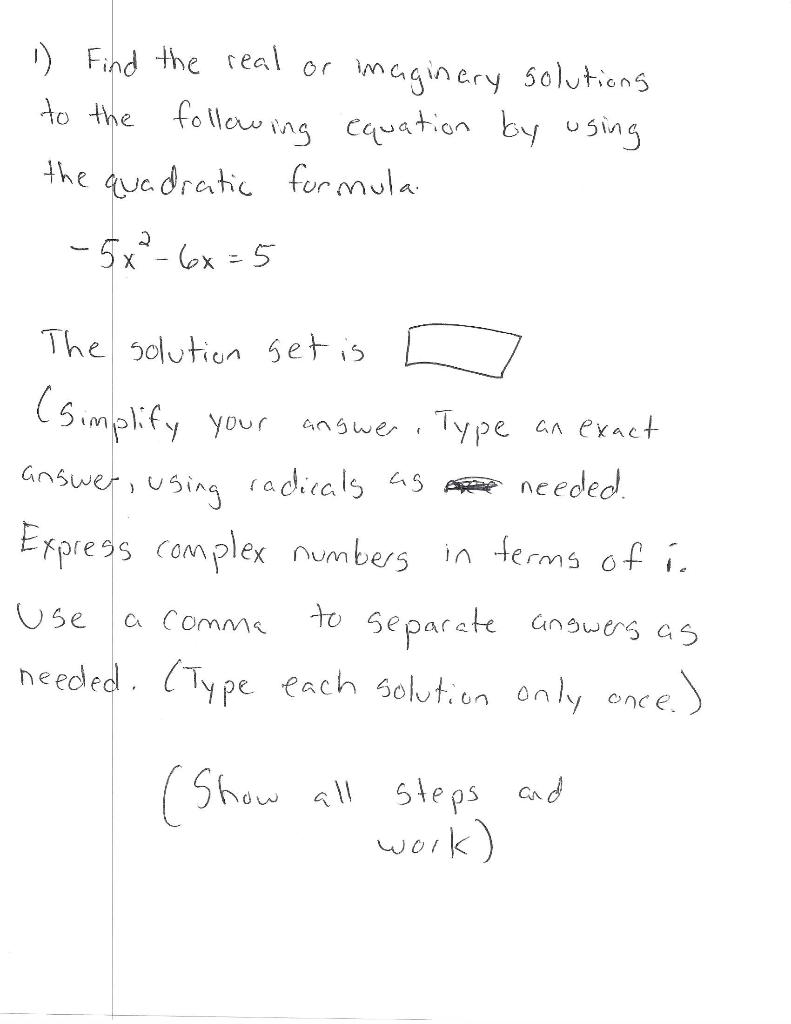 1) Find the real or imaginary solutions
to the following equation by using
the quadratic formula.
-5x² - 6x = 5
The solution set is
(Simplify your answer. Type an exact
answer, using radicals as needed.
Express complex numbers in terms of i.
Use a comma to separate answers as
needed. (Type each solution only once.)
(Show all steps and
work)